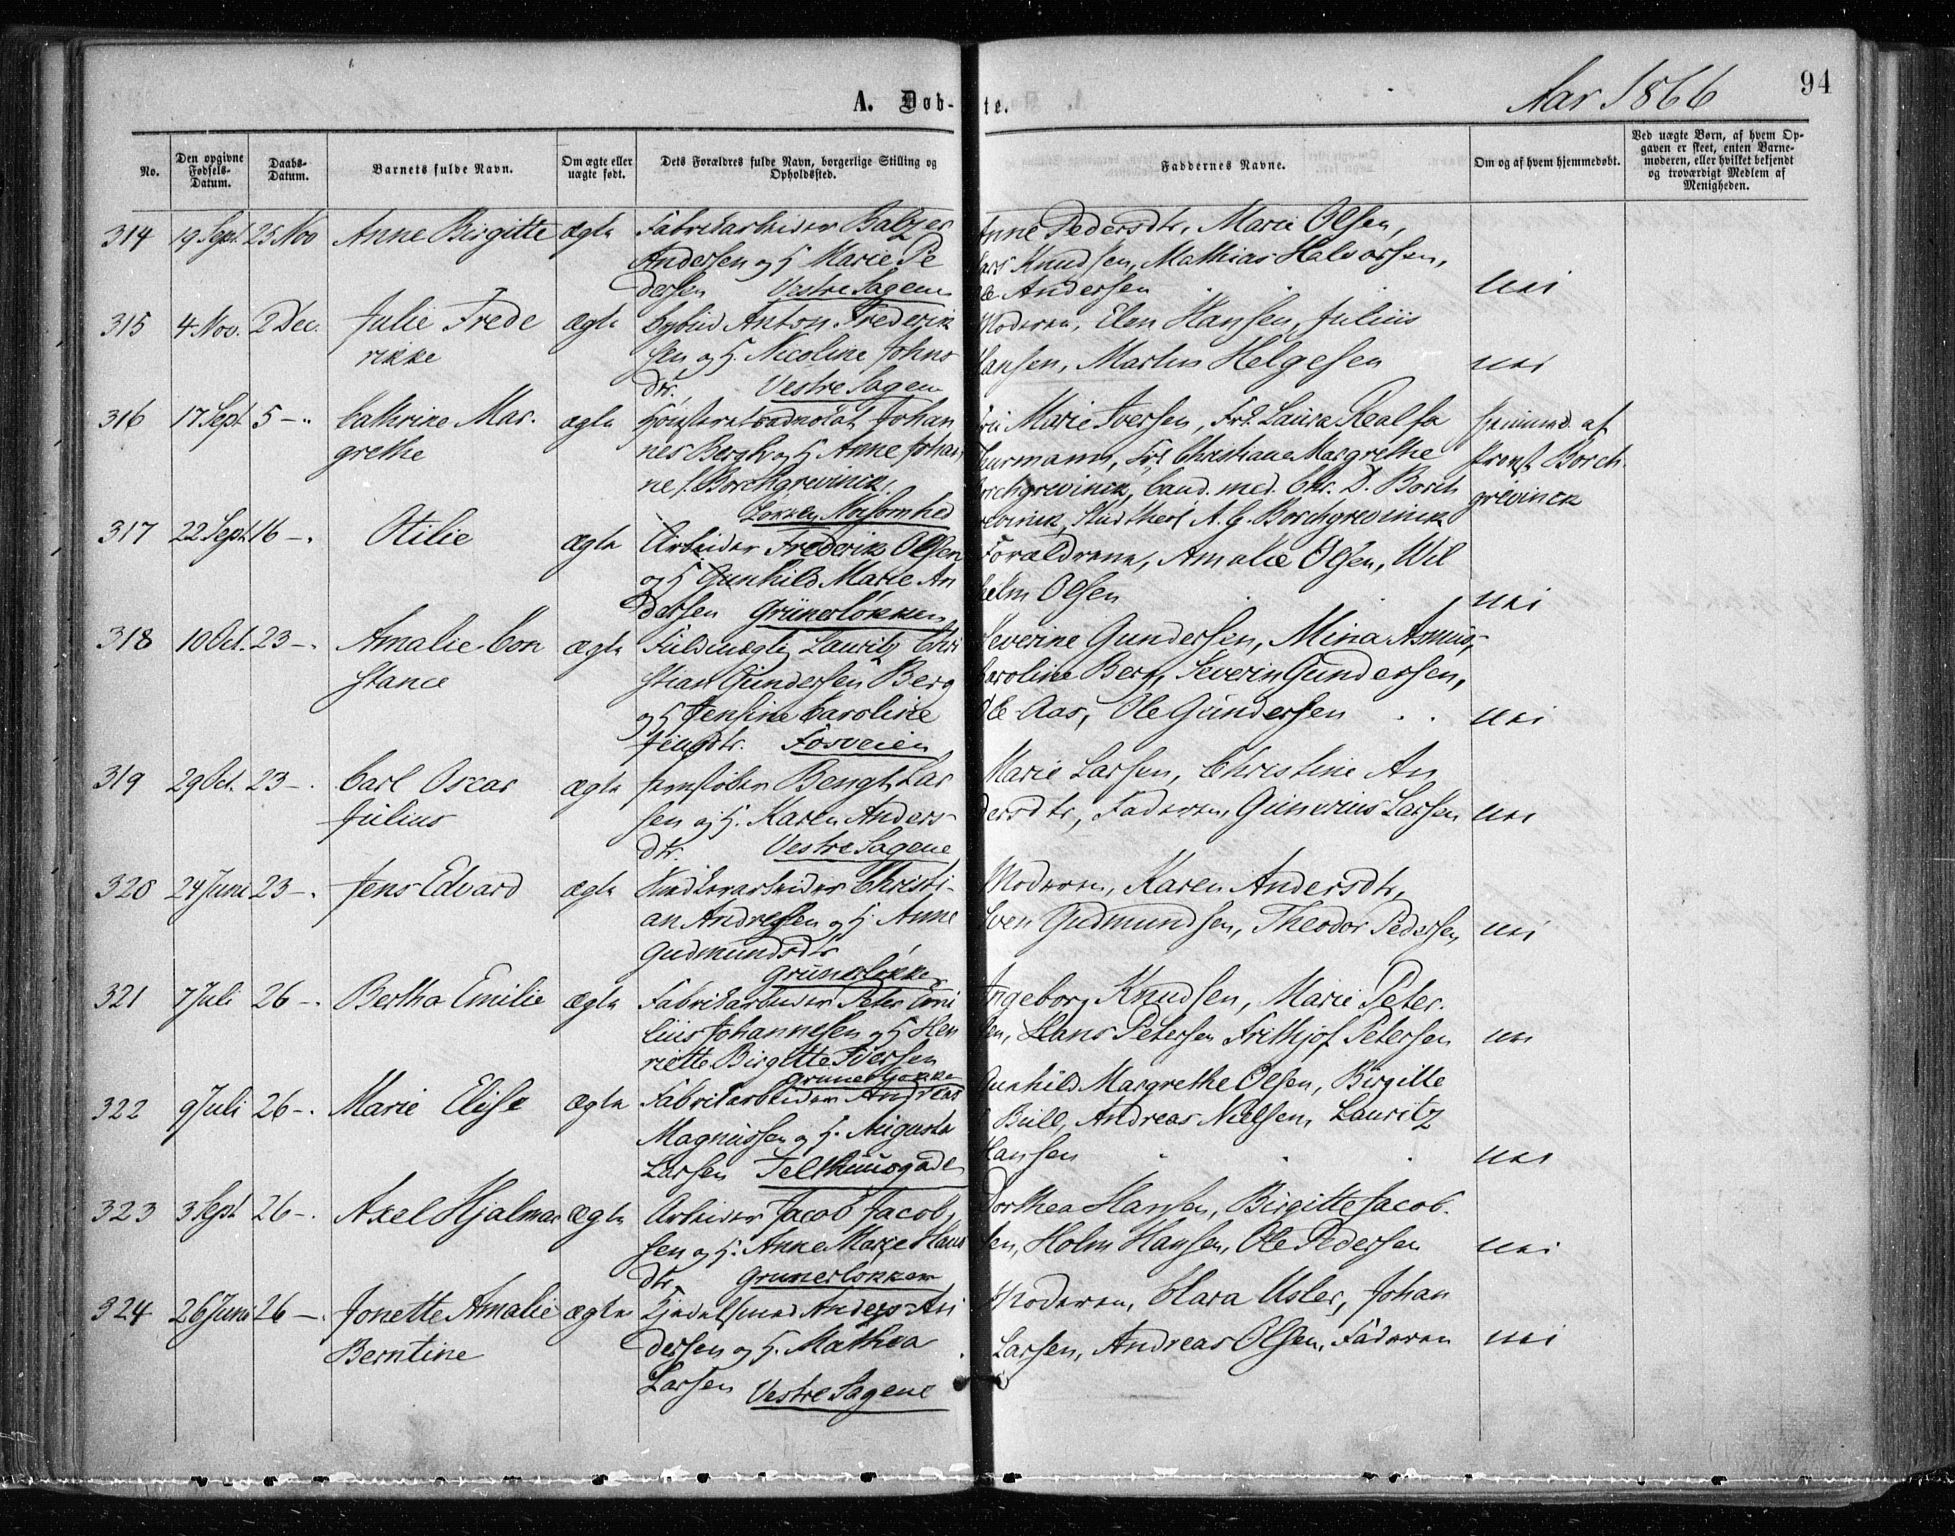 Aar 1866
94
A. Døb-
te.
No.
Den opgivne Fødsels-Datum.
Daabs-Datum.
Barnets fulde Navn.
Om ægte eller uægte født.
Dets Forældres fulde Navn, borgerlige Stilling og Opholdssted.
Faddernes Navne.
Om og af hvem hjemmedøbt.
Ved uægte Børn, af hvem Opgaven er skeet, enten Barnemoderen, eller hvilket bekjendt og troværdigt Medlem af Menigheden.
314 19 Sept. 25 Nov Anne Birgitte ægte Fabrikarbeider Baltzer
Andersen og H Marie Pe
dersen Vestre Sagene
Anne Pedersdtr, Marie Olsen,
Lars Knudsen, Mathias Halvorsen,
Ole Andersen nei
315 4 Nov. 2 Dec. Julie Frede
rikke ægte Bybud Anton Frederik
sen og H. Nicoline Johns
dtr. Vestre Sagene
Moderen, Elen Hansen, Julius
Hansen, Martin Helgesen nei
316 17 Sept 5 – Cathrine Mar.
grethe ægte Høiesteretsadvokat Johan
nes Bergh og H Anne Johan
ne f. Borchgrevinck.
Løkken
Marie Iversen, Frk. Laura
Thurmann, Frk Christiane Margrethe
Borchgrevinck, Cand. med. Chr. D. Borch
grevinck, Stud theol A. C. Borchgrevinck
hjemmed. af
Provst Borch.
grevinck
317 22 Sept 16 –. Otilie ægte Arbeider Frederik Olsen
og H Gunhild Marie An
dersen Grünerløkken
Forældrene, Amalie Olsen, Wil
helm Olsen nei
318 10 Oct. 23 –. Amalie Con
stance ægte Fuldmægtig Lauritz Chri
stian Gundersen Berg
og H Jensine Caroline
Jensdtr. Fosveien
Severine Gundersen, Mina Asmus,
Caroline Berg, Severin Gundersen,
Ole Aas, Ole Gundersen nei
319 29 Oct. 23 –. Carl Oscar
Julius ægte Jernstøber Bengt Lar
sen og H. Karen Anders-
dtr. Vestre Sagene
Marie Larsen, Christine An
dersdtr, Faderen, Gunerius Larsen nei
320 24 Juni 23 –. Jens Edvard ægte Christi-
an Andresen og H. Anne
Gudmundsdtr
Grünerløkke
Moderen, Karen Andersdtr,
Sven Gudmundsen, Theodor Pedersen nei
321 7 Juli 26 –. Bertha Emilie ægte Fabrikarbeider Peter Emi
lius Johannesen og H Hen
riette Birgitte Iversen
Grünerløkke
Ingeborg Knudsen, Marie Peter.
sen, Hans Petersen Frithjof Petersen nei
322 9 Juli 26 –. Marie Elise ægte Fabrikarbeider Andreas
Magnussen og H. Augusta
Larsen Telthuusgade
Gunhild Margrethe Olsen, Birgitte
Bull, Andreas Nielsen, Lauritz
Hansen nei
323 3 Sept 26 –. Axel Hjalmar ægte Arbeider Jacob Jacob,
sen og H. Anne Marie Hans
dtr, Grünerløkken
Dorthea Hansen, Birgitte Jacob.
sen, Holm Hansen, Ole Pedersen nei
324 26 Juni 26 –. Jonette Amalie
Berntine ægte Anders An
dersen og H. Mathea
Larsen Vestre Sagene
Moderen, Clara Usler, Johan
Larsen, Andreas Olsen, Faderen nei